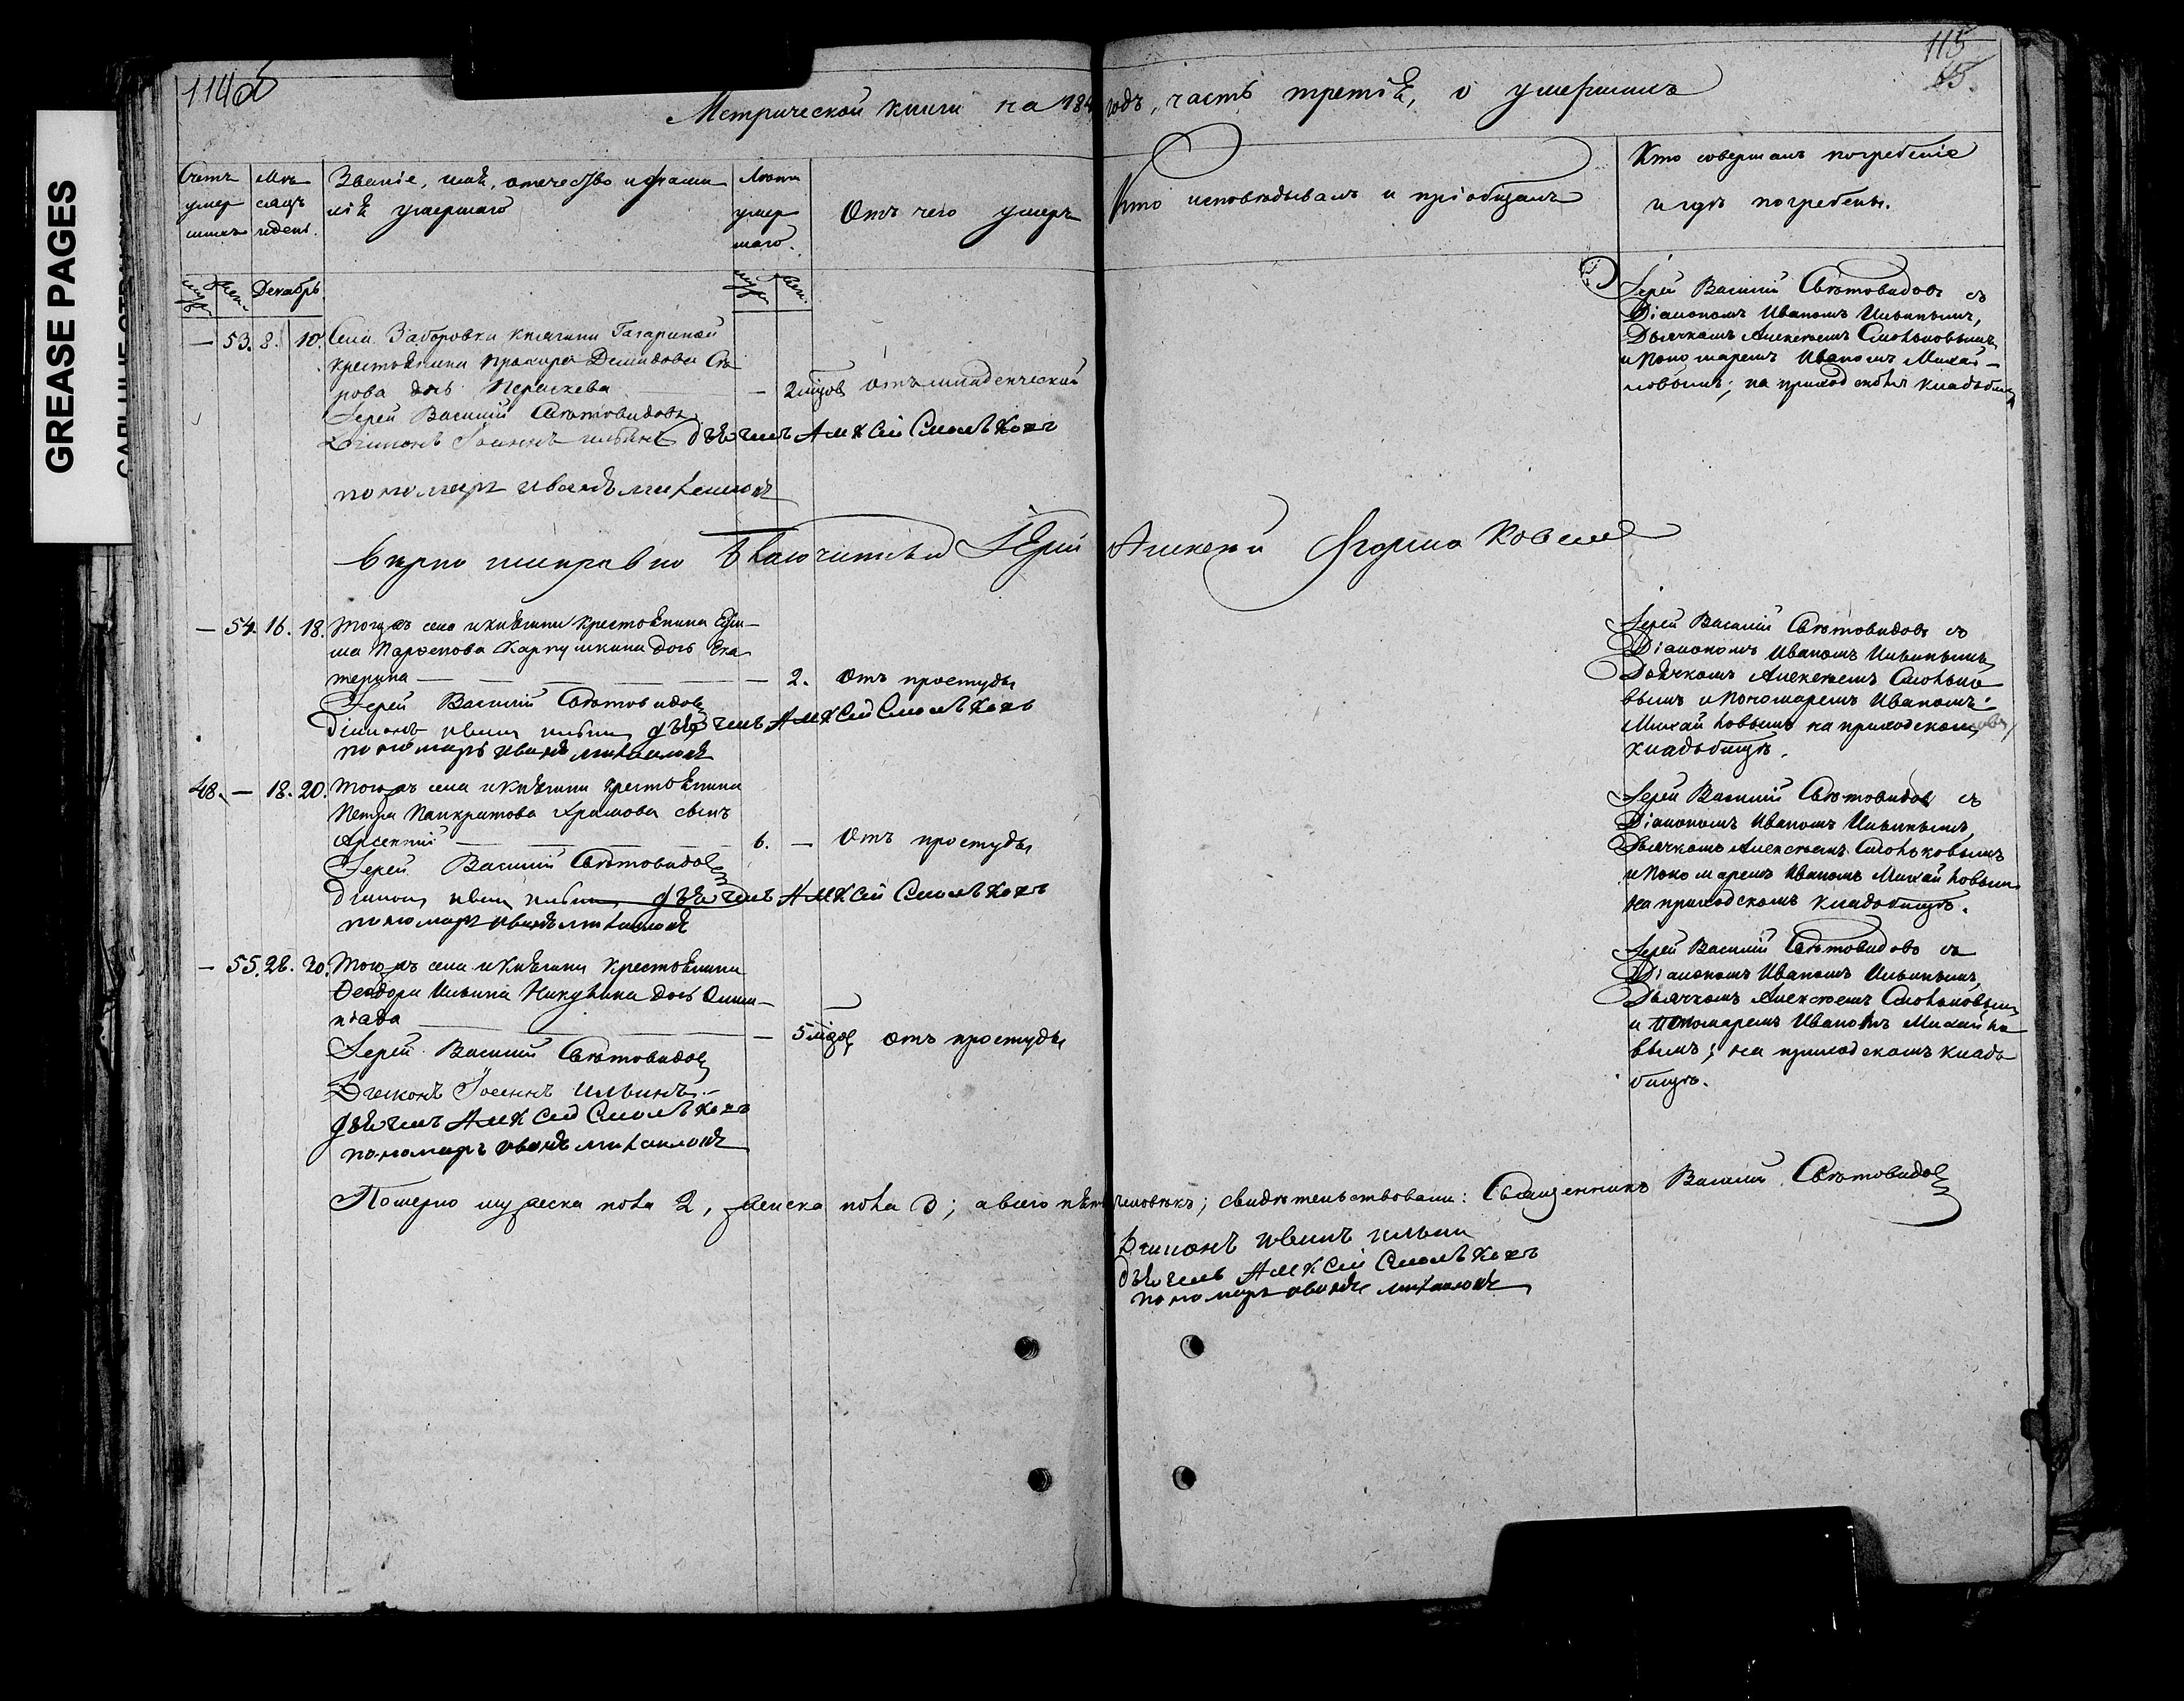 GREASE PAGES
114об
115
65.
Метрической книги на 184 годъ, часть третія, о умершихъ
Счетъ умер шихъ
Мѣ сяцъ и день.
Званіе, имя, отечество и фами
лія умершаго
Лѣта умер шаго.
Отъ чего умеръ
Кто исповѣдывалъ и пріобщалъ
Кто совершалъ погребеніе
и гдѣ погребены.
муж. жен. Декабрь муж. жен.
— 53. 8. 10. Села Заборовки княгини Гагариной
крестьянина Прохора Демидова
рова дочь Параскева — 2 мѣсцов отъ младенческой
Іерей Василий Свѣтовидовъ
Діаконъ Іоаннъ Ильинъ дьячекъ Алексей Смольковъ
пономарь иванъ михаиловъ
Іерей Василий Свѣтовидовъ съ
Діакономъ Иваномъ Ильинымъ,
Дьячкомъ Алексеемъ Смольковымъ
и Пономаремъ Иваномъ Михай-
ловымъ; на приходскомъ кладбищѣ
вѣрно и исправно Благочинный Іерей Алексей
— 54. 16. 18. Тогожъ села и княгини крестьянина Ефи-
ма Парѳенова Карпушкина дочь Ека
терина — — 2. Отъ простуды
Іерей Василий Свѣтовидовъ
Діаконъ иванъ ильинъ дьячекъ Алексей Смольковъ
пономарь иванъ михаиловъ
Іерей Василий Свѣтовидовъ съ
Діакономъ Иваномъ Ильинымъ
Дьячкомъ Алексеемъ Смолько
вымъ и Пономаремъ Иваномъ
Михайловымъ на приходскомъ
кладбищѣ.
48. — 18. 20. Тогожъ села и княгини крестьянина
Петра Панкратова Храмова сынъ
Арсентий — 6. — Отъ простуды
Іерей Василий Свѣтовидовъ
Діаконъ иванъ ильинъ дьячекъ Алексей Смольковъ
пономарь иванъ михаиловъ
Іерей Василий Свѣтовидовъ съ
Діакономъ Иваномъ Ильинымъ,
Дьячкомъ Алексеемъ Смольковымъ
и Пономаремъ Иваномъ Михайловымъ
на приходскомъ кладбищѣ.
— 55. 28. 30. Тогожъ села и княгини крестьянина
Ѳеодора Ильина Никулина дочь Олим-
піада — — 5 мѣсцов отъ простуды
Іерей Василий Свѣтовидовъ
Діаконъ Іоаннъ Ильинъ.
дьячекъ Алексей Смольковъ
пономарь иванъ михаиловъ
Іерей Василий Свѣтовидовъ съ
Діакономъ Иваномъ Ильинымъ,
Дьячкомъ Алексеемъ Смольковымъ
и Пономаремъ Иваномъ Михайло
вымъ; на приходскомъ кладь
бищѣ.
Померло мужеска пола 2, женска пола 3; а всего пять человѣкъ; свидѣтельствовали: Священникъ Василий Свѣтовидовъ
Діаконъ иванъ ильинъ
дьячекъ Алексей Смольковъ
пономарь иванъ михаиловъ